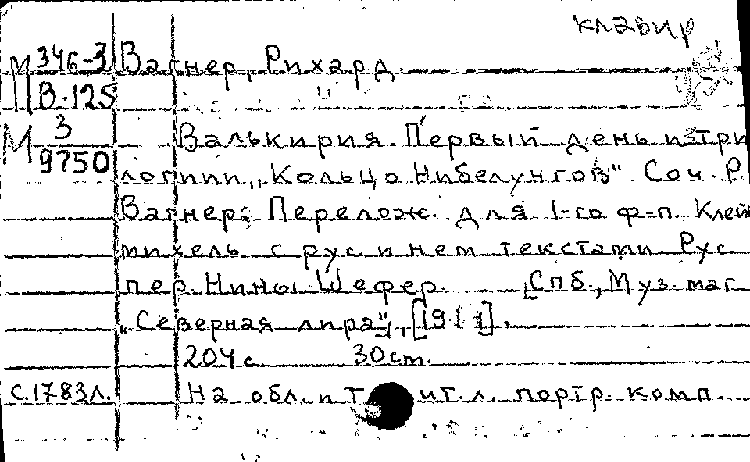 клавир
М 346-3 Вагнер, Рихард.
В-125
М 3 Валькирия. Первый день из три
9750 логии „Кольцо Нибелунгов". Соч. Р.
Вагнер. Перелож. для 1-го ф-п. Клей
михель с рус. и нем. текстами. Рус.
пер. Нины Шефер. [Спб., Муз. маг.
„Северная лира"],
204 с. 30 cm.
С.1783л. На обл. и портр. комп.